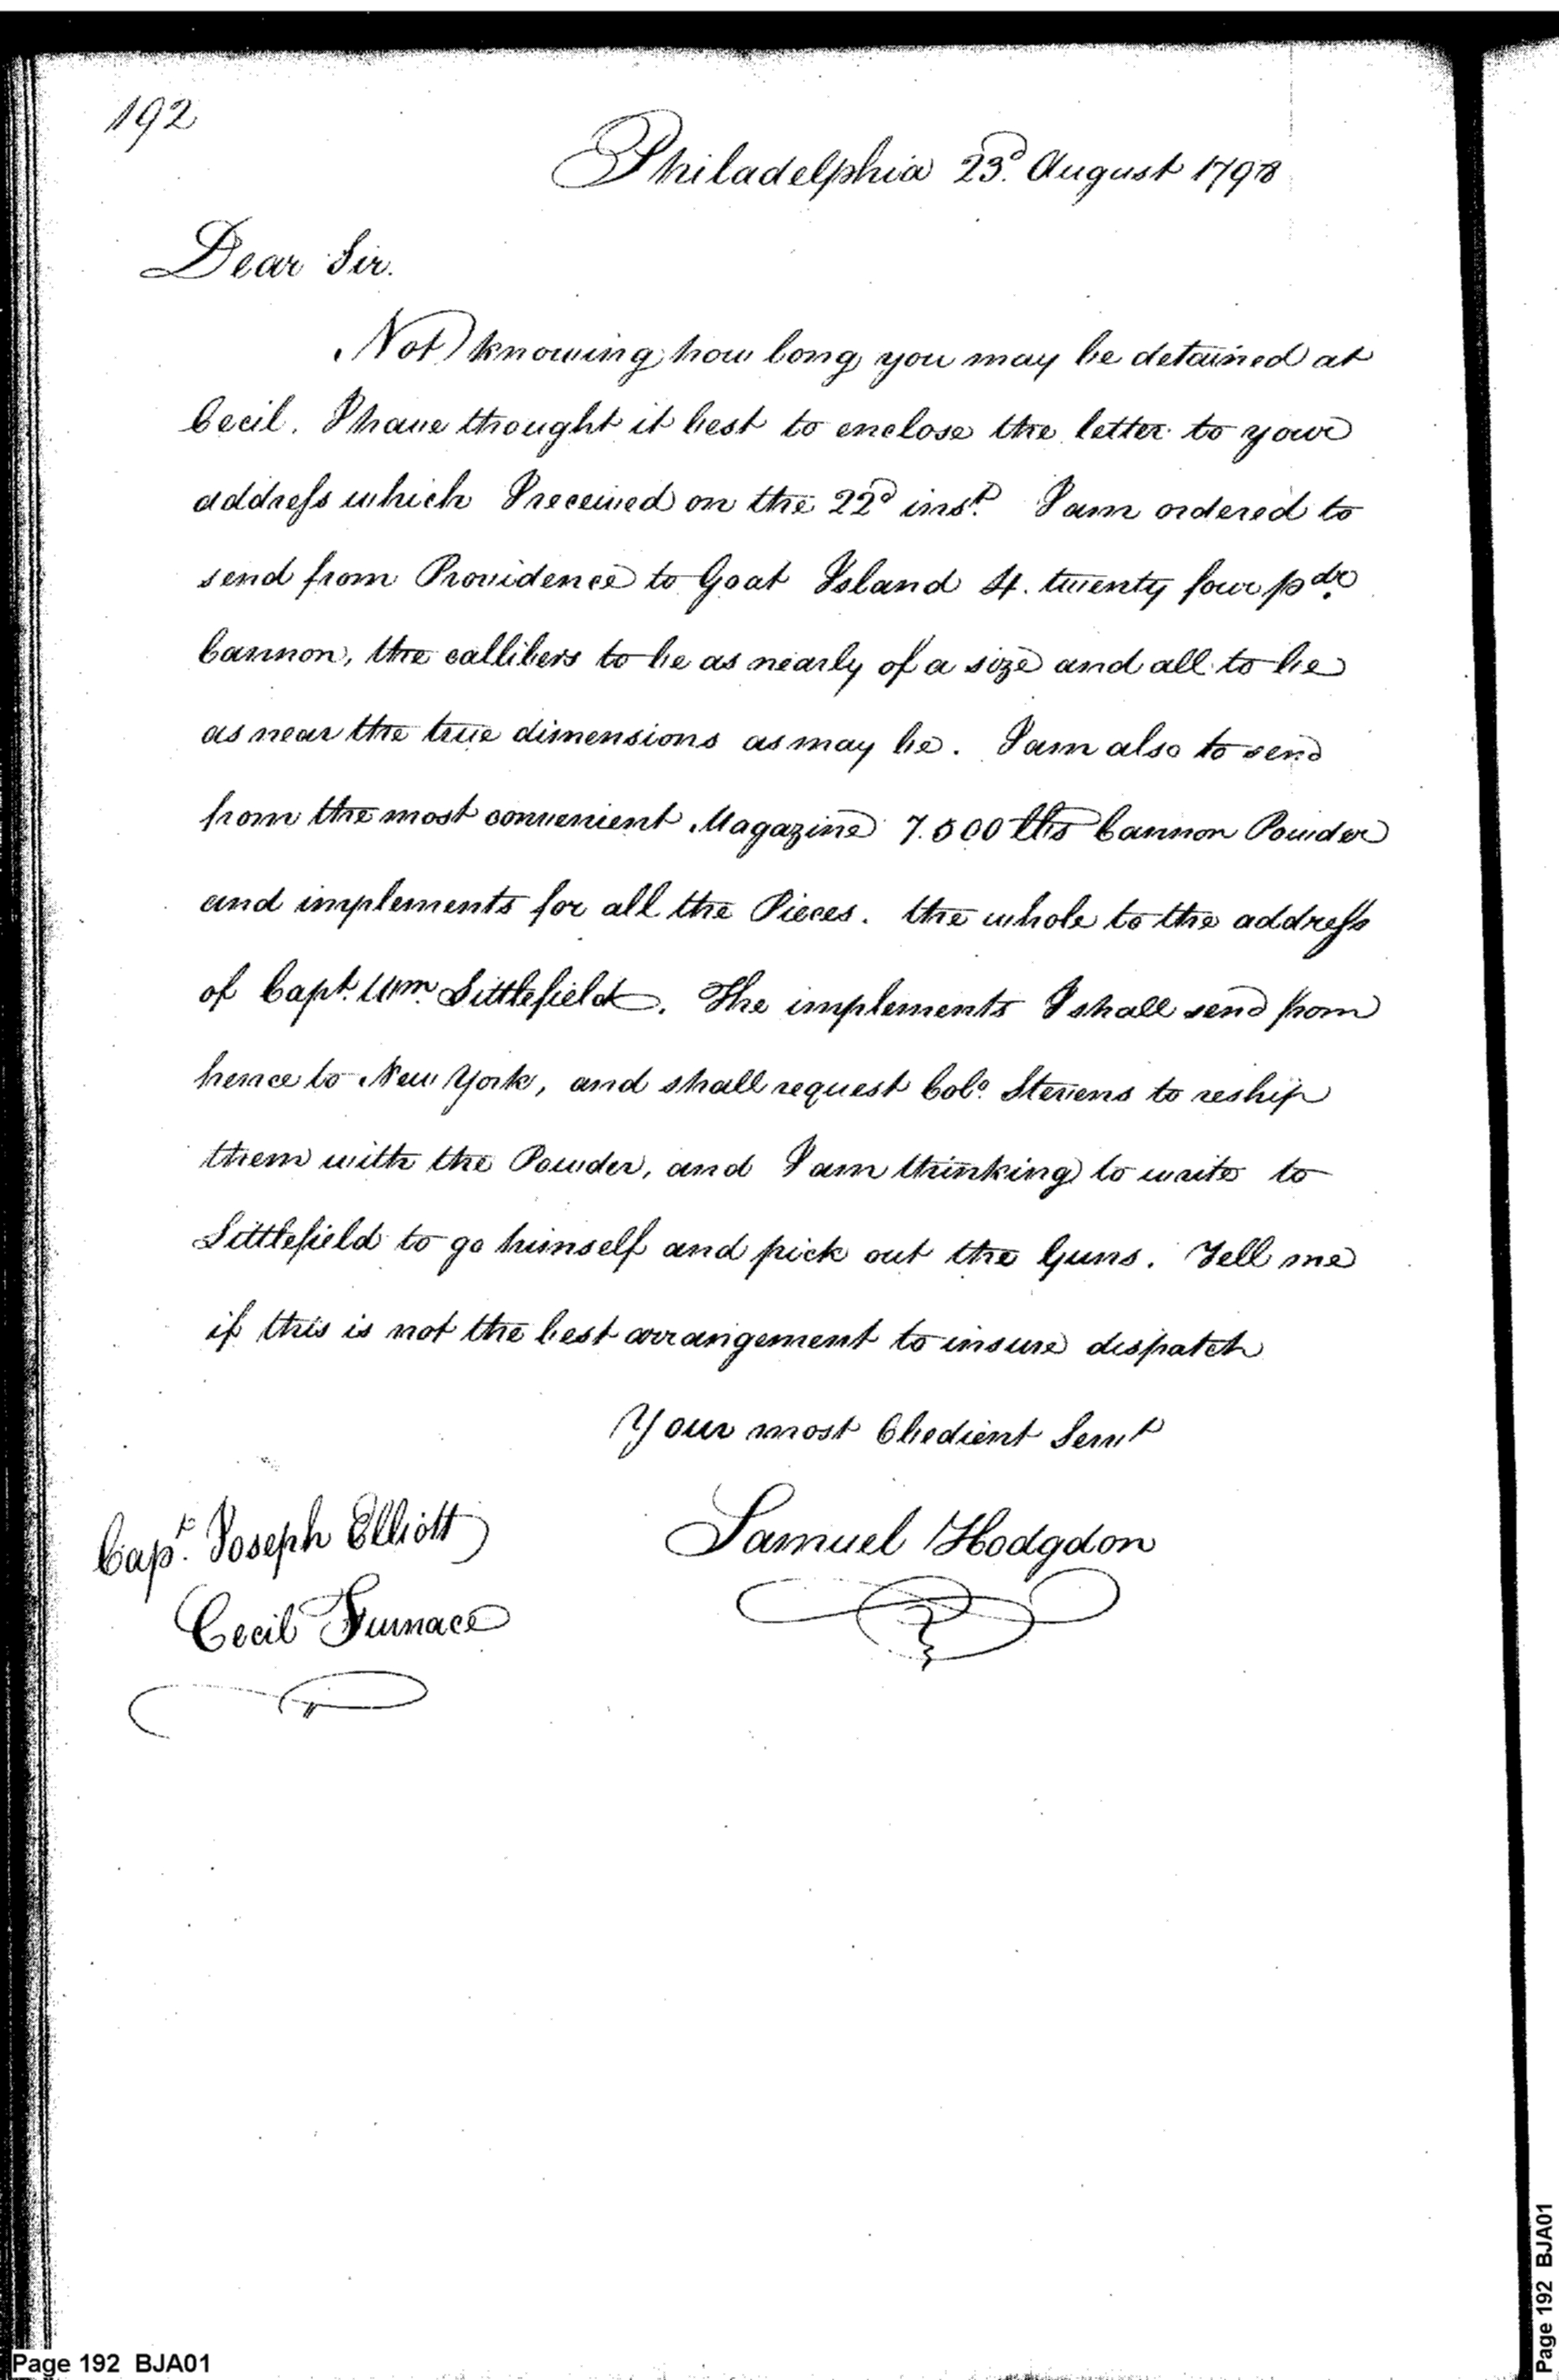 192
Philadelphia 23d. August 1798
Dear Sir.
Not knowing how long you may be detained at
Cecil. I have thought it best to enclose the letter to your
address which I received on the 22d inst. I am ordered to
send from Providence to Goat Island 4. twenty four pdr.
Cannon, the callibers to be as nearly of a size and all to be
as near the true dimensions as may be. I am also to send
from the most convenient Magazine 7.500 lbs Cannon Powder
and implements for all the Pieces. the whole to the address
of Capt. Wm. Littlefield. The implements I shall send from
hence to New York, and shall request Colo. Stevens to reship
them with the Powder, and I am thinking to write to
Littlefield to go himself and pick out the Guns. Tell me
if this is not the best arrangement to insure dispatch
Your most Obedient Servt
Samuel Hodgdon
Capt. Joseph Elliott
Cecil Furnace
Page 192 BJA01
Page 192 BJA01